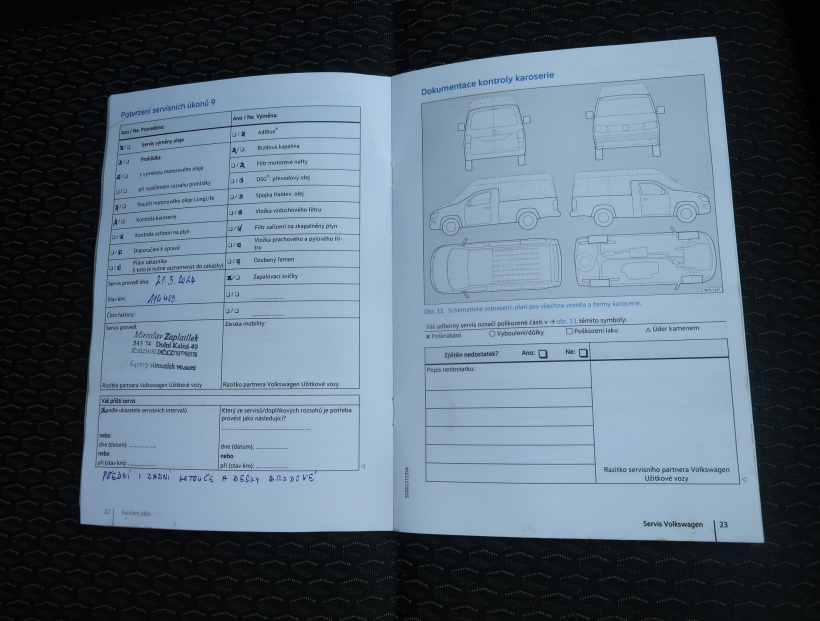 Potvrzení servisních úkonů 9
Ano / Ne. Provedeno:
Servis výměny oleje
Prohlídka
s výměnou motorového oleje
při rozšířeném rozsahu prohlídky
Použití motorového oleje LongLife
Kontrola karoserie
Kontrola zařízení na plyn
Doporučení k opravě
Přání zákazníka
(i toto je nutné zaznamenat do zakázky)
Servis provedl dne: 21.3.2024
Stav km:
Číslo faktury:
Servis provedl
Miroslav Zaplatílek
543 74 Dolní Kalná 49
Razítko partnera Volkswagen Užitkové vozy
Ano / Ne. Výměna:
AdBlue®
Brzdová kapalina
Filtr motorové nafty
DSG®: převodový olej
Spojka Haldex: olej
Vložka vzduchového filtru
Filtr zařízení na zkapalněný plyn
Vložka prachového a pylového fil-
tru
Ozubený řemen
Zapalovací svíčky
Záruka mobility:
Razítko partnera Volkswagen Užitkové vozy
Váš příští servis
podle ukazatele servisních intervalů
nebo
dne (datum): ................
nebo
při (stav km): ................
Který ze servisů/doplňkových rozsahů je potřeba
provést jako následující?
dne (datum): ................
nebo
při (stav km): ................
PŘEDNÍ I ZADNÍ KOTOUČE A DESKY BRZDOVÉ
22 Servisní plán
Dokumentace kontroly karoserie
Obr. 11 Schematické zobrazení: platí pro všechna vozidla a formy karoserie.
Váš odborný servis označí poškozené části v → obr. 11 těmito symboly:
Poškrábání Vyboulení/důlky Poškození laku Úder kamenem
Zjištěn nedostatek? Ano: Ne:
Popis nedostatku:
Razítko servisního partnera Volkswagen
Užitkové vozy
Servis Volkswagen 23